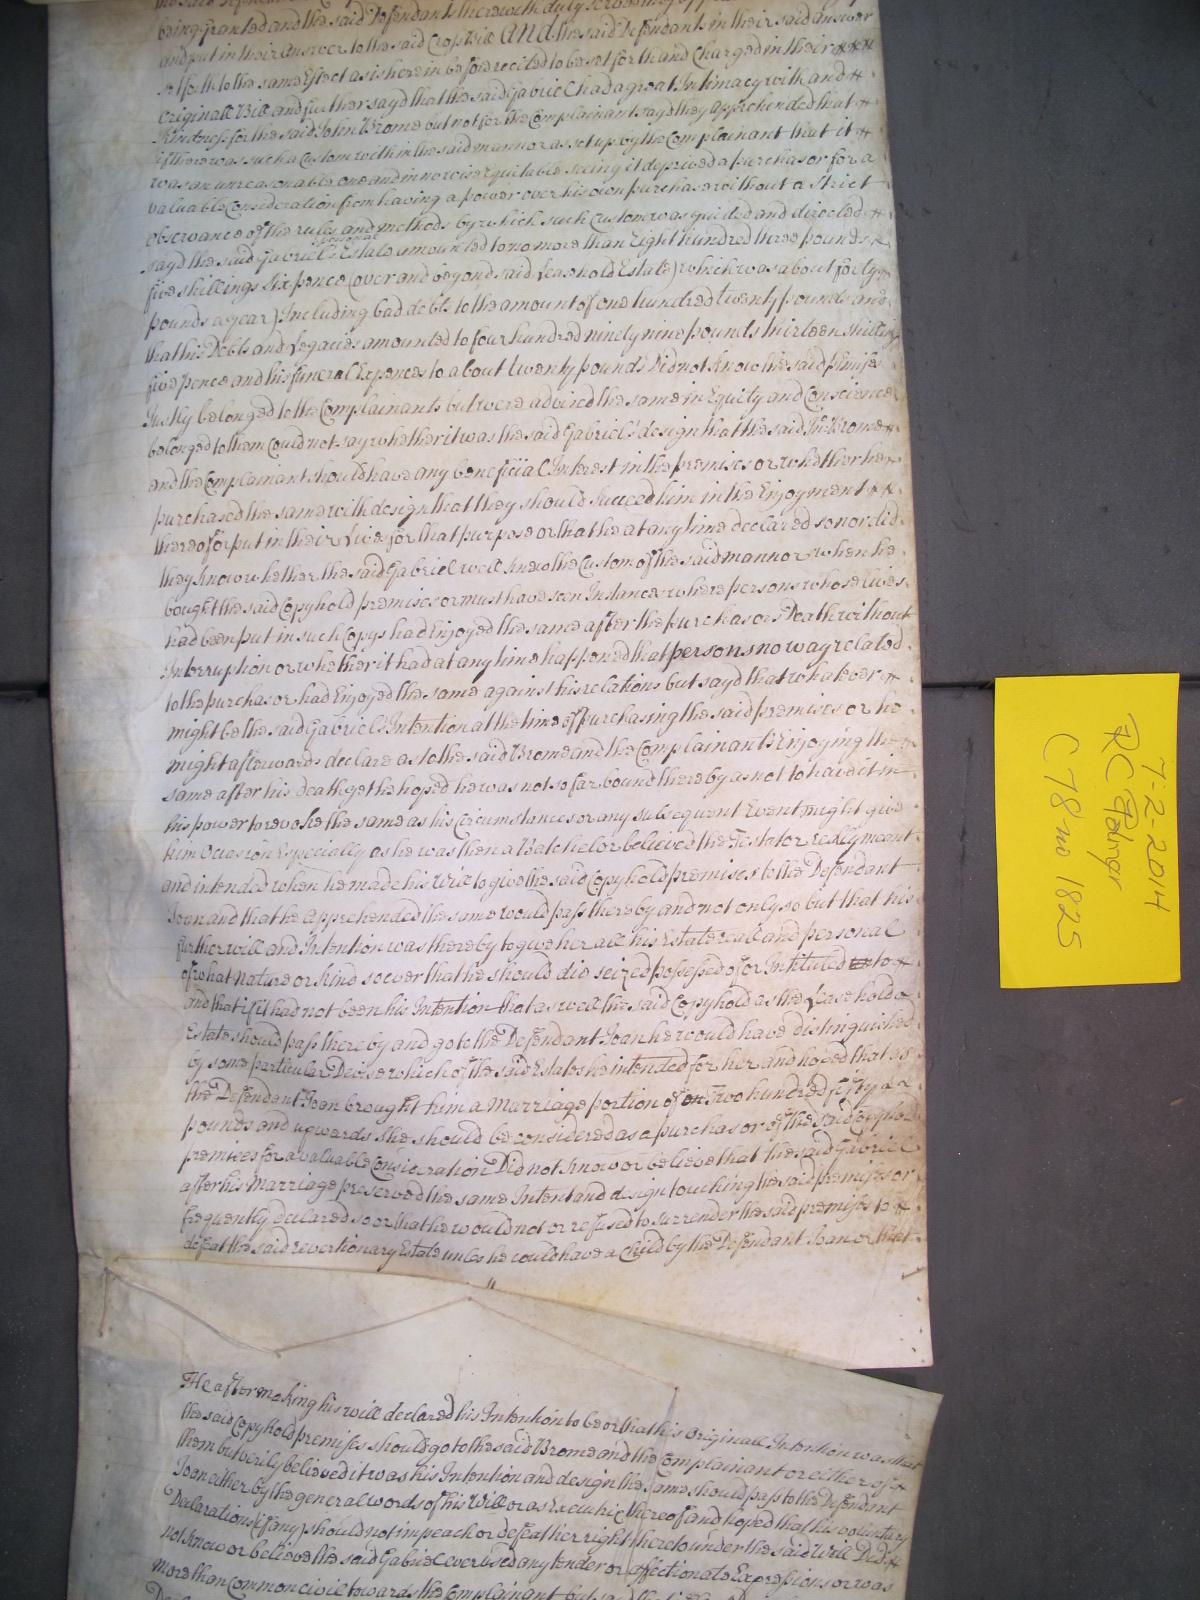 being granted and the said Defendants therewith duly served they
and put in their Answer to the said Cross Bill AND the said Defendants in their said Answer
set forth to the same Effect as is herein before recited to be set forth and Charged in their
originall Bill and further sayd that the said Gabriel had a great Intimacy with and
Kindness for the said John Brome but not for the Complainant sayd they apprehended that
if there was such a Custom within the said mannor as set up by the Complainant that it
was an unreasonable one and in no wise Equitable seeing it deprived a purchasor for a
valuable Consideration from having a power over his own purchase without a Strict
observance of the rules and methods by which such Custom was guided and directed
sayd the said Gabriel's personal Estate amounted to no more than Eight hundred three pounds
five shillings Six pence (over and beyond said Leasehold Estate) which was about forty
pounds a year) Including bad debts to the amount of one hundred twenty pounds and
that his Debts and Legacies amounted to four hundred ninety nine pounds thirteen shillings
five pence and his funeral Expences to about twenty pounds Did not know the said premises
Justly belonged to the Complainants but were advised the same in Equity and Conscience
belonged to them Could not say whether it was the said Gabriel's design that the said Jno. Brome
and the Complainant should have any beneficial Interest in the premises or whether he
purchased the same with design that they should Succeed him in the Enjoyment
thereof or put in their Lives for that purpose or that he at any time declared so nor did
they know whether the said Gabriel well knew the Custom of the said mannor when he
bought the said Copyhold premises or must have seen Instances where persons whose lives
had been put in such Copys had Enjoyed the same after the purchasors Death without
Interruption or whether it had at any time happened that persons no way related
to the purchasor had Enjoyed the same against his relations but sayd that whatever
might be the said Gabriel's Intention at the time of purchasing the said premises or he
might afterwards declare as to the said Brome and the Complainants Enjoying the
same after his death yet he hoped he was not so far bound thereby as not to have it in
his power to revoke the same as his Circumstances or any subsequent Event might give
him Occasion Especially as he was then a Batchelor believed the Testator really meant
and intended when he made his Will to give the said Copyhold premises to the Defendant
Joan and that he apprehended the same would pass thereby and not only so but that his
further will and Intention was thereby to give her all his Estate reall and personal
of what Nature or Kind soever that he should die seized possessed of or Intituled to
and that if it had not been his Intention that as well the said Copyhold as the Leasehold
Estate should pass thereby and go to the Defendant Joan he would have distinguished
by some particular Devise which of the said Estates he intended for her and hoped that as
the Defendant Joan brought him a Marriage portion of Two hundred fifty
pounds and upwards she should be considered as a purchasor of the said Copyhold
premises for a valuable Consideration Did not know or believe that the said Gabriel
after his Marriage preserved the same Intent and design touching the said premises or
frequently declared so or that he would not or refused to surrender the said premises to
defeat the said revertionary Estate unless he could have a Child by the Defendant Joan or that
He after making his will declared his Intention to be or that his Originall Intention was that
the said Copyhold premises should go to the said Brome and the Complainant or either of
them but verily believed it was his Intention and design the same should pass to the Defendant
Joan either by the general words of his Will or as Execuhic thereof and hoped that his voluntary
Declarations (if any) should not impeach or defeat her right thereto under the said Will Did
not know or believe the said Gabriel ever used any tender or affectionate Expressions or was
more than Common civil towards the Complainant but said
7-2-2014
RC Palmer
C 78 no 1825